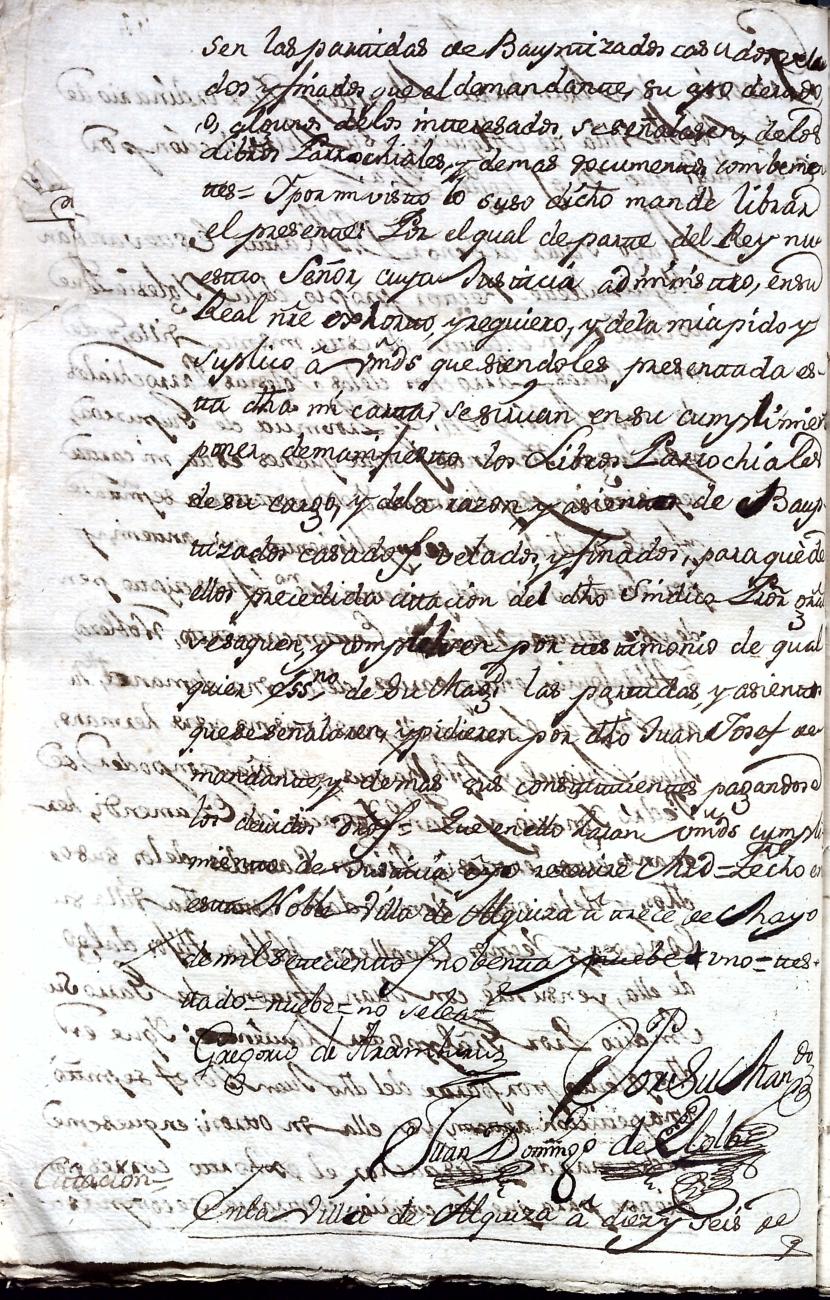 sen las partidas de Bauptizados casados vela
dos y finados que el demandante, su
o, algunos de los interesados, se señalasen, de los
Libros Parrochiales, y demas documentos combenien
tes= Y por mi visto lo suso dicho mande librar
el presente: Por el qual de parte del Rey nu
estro Señor, cuya Justicia administro, en su
Real nre exhorto, y requiero, y de la mia pido y
suplico â vmds que siendoles presentada es-
ta dha mi carta, se sirvan en su cumplimien
poner de manifiesto los Libros Parrochiales
de su cargo, y de la razon, y asientos de Baup
tizados casados velados, y finados, para que de
ellos precedida citacion del dho Sindico Pror
se saquen, y compulsen por testimonio de qual
quier essno de su Magd las partidas, y asientos
que se señalaren, y pidieren por dho Juan Josef de
mandante, y demas sus constituientes pagandose
los devidos = Que en ello haran vmds cumpli
miento de Justicia, e yo recivire Mrd= Fecho en
esta Noble Villa de Alquiza a trece de Mayo
de mil setecientos y nobenta y nuebe uno= tes-
tado= nuebe= no se lea=
Gregorio de Aramburu
Por su Man do
Juan Domingo de Elola
Citacion
En la Villa de Alquiza a diez y seis de